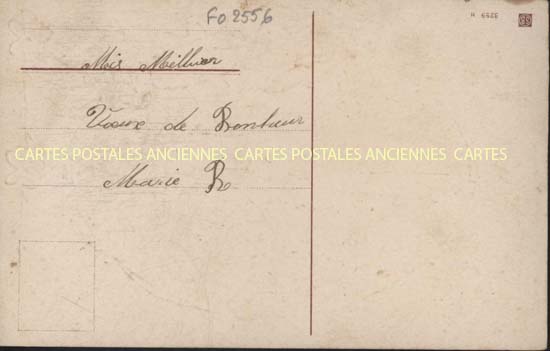 FO 2556
Meis Meilleur
Vœux de Bonheur
CARTES POSTALES ANCIENNES CARTES POSTALES ANCIENNES CARTES
Marie R